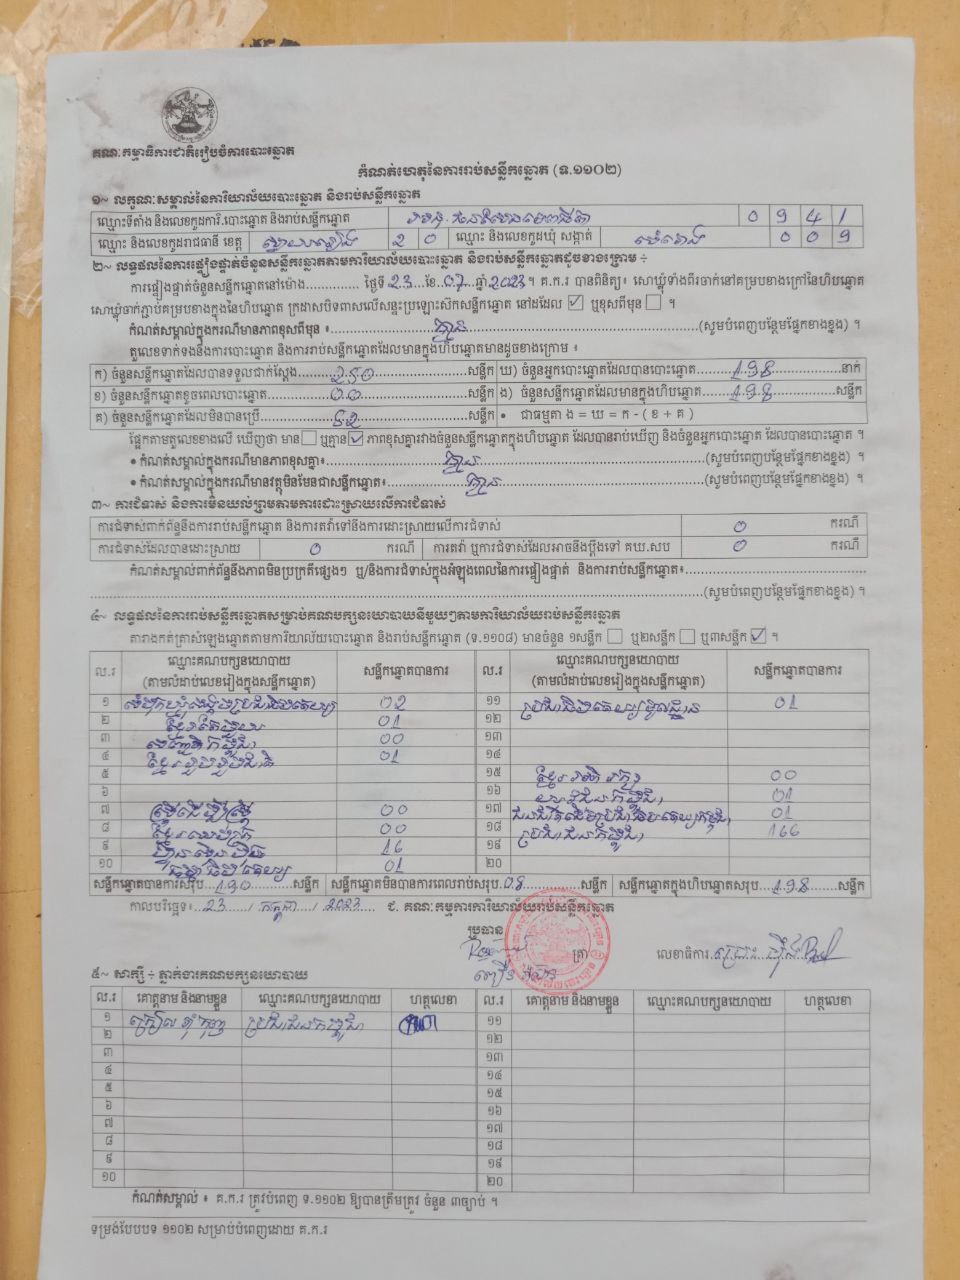 គណៈកម្មាធិការជាតិរៀបចំការបោះឆ្នោត
កំណត់ហេតុនៃការរាប់សន្លឹកឆ្នោត (ទ.១១០២)
១~ លក្ខណៈសម្គាល់នៃការិយាល័យបោះឆ្នោត និងរាប់សន្លឹកឆ្នោត
ឈ្មោះទីតាំង និងលេខកូដការិ.បោះឆ្នោត និងរាប់សន្លឹកឆ្នោត 0 9 4 1
ឈ្មោះ និងលេខកូដរាជធានី ខេត្ត ស្វាយរៀង 2 0 ឈ្មោះ និងលេខកូដឃុំ សង្កាត់ 0 0 9
២~ លទ្ធផលនៃការផ្ទៀងផ្ទាត់ចំនួនសន្លឹកឆ្នោតតាមការិយាល័យបោះឆ្នោត និងរាប់សន្លឹកឆ្នោតដូចខាងក្រោម ÷
ការផ្ទៀងផ្ទាត់ចំនួនសន្លឹកឆ្នោតនៅម៉ោង.............. ថ្ងៃទី 23 ខែ 07 ឆ្នាំ 2023 ។ គ.ក.រ បានពិនិត្យ៖ សោឃ្លុំទាំងពីរចាក់នៅគម្របខាងក្រៅនៃហិបឆ្នោត
សោឃ្លុំចាក់ភ្ជាប់គម្របខាងក្នុងនៃហិបឆ្នោត ក្រដាសបិទពាសលើសន្ទះប្រឡោះសឹកសន្លឹកឆ្នោត នៅដដែល ☑ ឬខុសពីមុន ☐ ។
កំណត់សម្គាល់ក្នុងករណីមានភាពខុសពីមុន ៖ គ្មាន (សូមបំពេញបន្ថែមផ្នែកខាងខ្នង) ។
តួលេខទាក់ទងនឹងការបោះឆ្នោត និងការរាប់សន្លឹកឆ្នោតដែលមានក្នុងហិបឆ្នោតមានដូចខាងក្រោម ៖
ក) ចំនួនសន្លឹកឆ្នោតដែលបានទទួលជាក់ស្ដែង 250 សន្លឹក ឃ) ចំនួនអ្នកបោះឆ្នោតដែលបានបោះឆ្នោត 198 នាក់
ខ) ចំនួនសន្លឹកឆ្នោតខូចពេលបោះឆ្នោត 00 សន្លឹក ង) ចំនួនសន្លឹកឆ្នោតដែលមានក្នុងហិបឆ្នោត 198 សន្លឹក
គ) ចំនួនសន្លឹកឆ្នោតដែលមិនបានប្រើ 52 សន្លឹក • ជាធម្មតា ង = ឃ = ក - ( ខ + គ )
ផ្អែកតាមតួលេខខាងលើ ឃើញថា មាន ☐ ឬគ្មាន ☑ ភាពខុសគ្នារវាងចំនួនសន្លឹកឆ្នោតក្នុងហិបឆ្នោត ដែលបានរាប់ឃើញ និងចំនួនអ្នកបោះឆ្នោត ដែលបានបោះឆ្នោត ។
• កំណត់សម្គាល់ក្នុងករណីមានភាពខុសគ្នា៖ គ្មាន (សូមបំពេញបន្ថែមផ្នែកខាងខ្នង) ។
• កំណត់សម្គាល់ក្នុងករណីមានវត្ថុមិនមែនជាសន្លឹកឆ្នោត៖ គ្មាន (សូមបំពេញបន្ថែមផ្នែកខាងខ្នង) ។
៣~ ការជំទាស់ និងការមិនយល់ព្រមតាមការដោះស្រាយលើការជំទាស់
ការជំទាស់ពាក់ព័ន្ធនឹងការរាប់សន្លឹកឆ្នោត និងការតវ៉ាទៅនឹងការដោះស្រាយលើការជំទាស់ 0 ករណី
ការជំទាស់ដែលបានដោះស្រាយ 0 ករណី ការតវ៉ា ឬការជំទាស់ដែលអាចនឹងប្ដឹងទៅ គឃ.សប 0 ករណី
កំណត់សម្គាល់ពាក់ព័ន្ធនឹងភាពមិនប្រក្រតីផ្សេងៗ ឬ/និងការជំទាស់ក្នុងអំឡុងពេលនៃការផ្ទៀងផ្ទាត់ និងការរាប់សន្លឹកឆ្នោត៖
(សូមបំពេញបន្ថែមផ្នែកខាងខ្នង) ។
៤~ លទ្ធផលនៃការរាប់សន្លឹកឆ្នោតសម្រាប់គណបក្សនយោបាយនីមួយៗតាមការិយាល័យរាប់សន្លឹកឆ្នោត
តារាងកត់ត្រាសំឡេងឆ្នោតតាមការិយាល័យបោះឆ្នោត និងរាប់សន្លឹកឆ្នោត (ទ.១១០៨) មានចំនួន ១សន្លឹក ☐ ឬ២សន្លឹក ☐ ឬ៣សន្លឹក ☑ ។
ល.រ ឈ្មោះគណបក្សនយោបាយ (តាមលំដាប់លេខរៀងក្នុងសន្លឹកឆ្នោត) សន្លឹកឆ្នោតបានការ ល.រ ឈ្មោះគណបក្សនយោបាយ (តាមលំដាប់លេខរៀងក្នុងសន្លឹកឆ្នោត) សន្លឹកឆ្នោតបានការ
១ សំបុកឃ្មុំសង្គមប្រជាធិបតេយ្យ 02 ១១ ប្រជាធិបតេយ្យមូលដ្ឋាន 01
២ ខ្មែរតែមួយ 01 ១២
៣ សញ្ជាតិកម្ពុជា 00 ១៣
៤ ខ្មែររួបរួមជាតិ 01 ១៤
៥ ១៥ ខ្មែរអភិរក្ស 00
៦ ១៦ យុវជនកម្ពុជា 01
៧ ស្ត្រីដើម្បីស្ត្រី 00 ១៧ ជនជាតិដើមប្រជាធិបតេយ្យកម្ពុជា 01
៨ 00 ១៨ ប្រជាជនកម្ពុជា 166
៩ ហ៊្វុនស៊ិនប៉ិច 16 ១៩
១០ ធម្មាធិបតេយ្យ 01 ២០
សន្លឹកឆ្នោតបានការសរុប 190 សន្លឹក សន្លឹកឆ្នោតមិនបានការពេលរាប់សរុប 08 សន្លឹក សន្លឹកឆ្នោតក្នុងហិបឆ្នោតសរុប 198 សន្លឹក
កាលបរិច្ឆេទ៖ 23 / កក្កដា / 2023 ជ. គណៈកម្មការការិយាល័យរាប់សន្លឹកឆ្នោត
ប្រធាន
ត្រា លេខាធិការ
៥~ សាក្សី ÷ ភ្នាក់ងារគណបក្សនយោបាយ
ល.រ គោត្តនាម និងនាមខ្លួន ឈ្មោះគណបក្សនយោបាយ ហត្ថលេខា ល.រ គោត្តនាម និងនាមខ្លួន ឈ្មោះគណបក្សនយោបាយ ហត្ថលេខា
១ ប្រជាជនកម្ពុជា ១១
២ ១២
៣ ១៣
៤ ១៤
៥ ១៥
៦ ១៦
៧ ១៧
៨ ១៨
៩ ១៩
១០ ២០
កំណត់សម្គាល់ ៖ គ.ក.រ ត្រូវបំពេញ ទ.១១០២ ឱ្យបានត្រឹមត្រូវ ចំនួន ៣ច្បាប់ ។
ទម្រង់បែបបទ ១១០២ សម្រាប់បំពេញដោយ គ.ក.រ